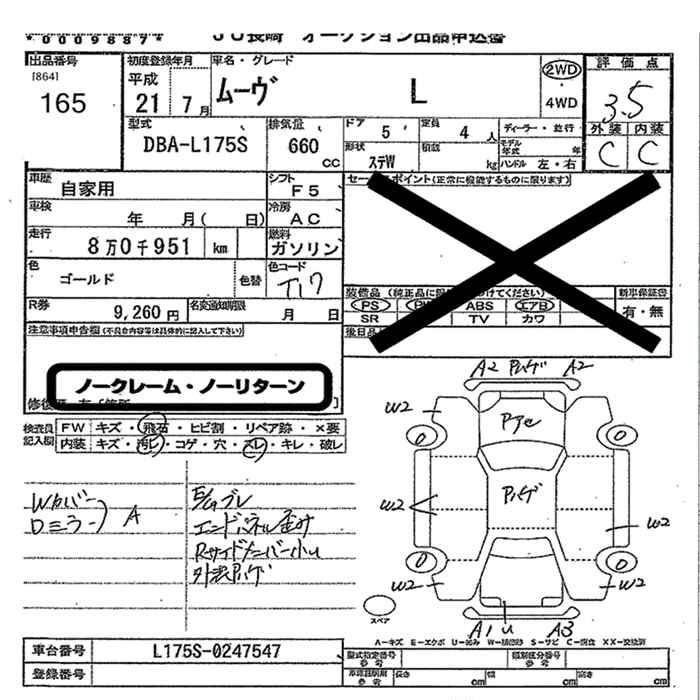 *0009887* JU長崎 オークション出品申込書
出品番号
[864]
165
初度登録年月
平成
21 7月
車名・グレード
ムーヴ L
2WD
・
4WD
評価点
3.5
外装 内装
C C
型式
DBA-L175S
排気量
660
CC
ドア
5
定員
4 人
形状
ステW
積載
kg
ディーラー・並行
モデル
年式 年
ハンドル 左・右
車歴
自家用
シフト
F5
車検
年 月( 日)
冷房
AC
走行
8万0千951 km
燃料
ガソリン
色
ゴールド
色替
色コード
T17
R券
9,260 円
名変通知期限
月 日
セー ポイント(正常に機能するものに限ります)
装備品 (純正品に限 けてください)
PS PW ABS エアB
SR TV カワ
新車保証書
有・無
後日品
注意事項申告欄(不具合内容等は具体的に記入して下さい)
ノークレーム・ノーリターン
検査員
記入欄
FW キズ・飛石・ヒビ割・リペア跡・×要
内装 キズ・汚レ・コゲ・穴・スレ・キレ・破レ
Wカバー
Dミラー A
E/Gブレ
エンドパネル歪み
Rサイドメンバー小u
外装Pハゲ
A2 Pハゲ A2
W2
Pハゲ
W2
W2
W2
W2
A1 u A3
スペア
A-キズ E-エクボ U-凹み W-補修跡 S-サビ C-腐食 XX-交換済
車台番号
L175S-0247547
登録番号
型式指定番号
参考
類別区分番号
参考
車庫証明用
参考
長さ cm 幅 cm 高さ cm